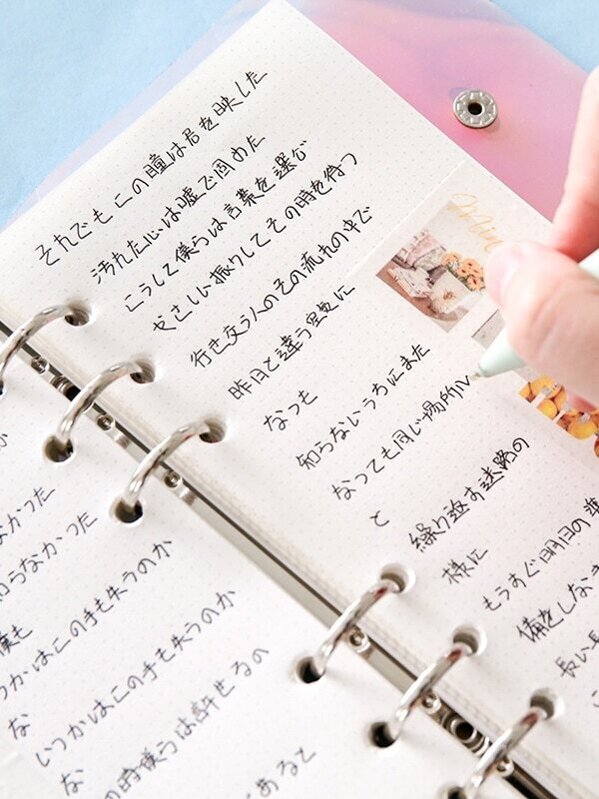 それでもこの瞳は君を映した
汚れた心は嘘で固めた
こうして僕らは言葉を選び
やさしい振りしてその時を待つ
行き交う人のその流れの中で
昨日と違う空気に
なっても
知らないうちにまた
なっても同じ場所に
と
繰り返す迷路の
様に
もうすぐ明日の準
備をしなき
長い長
なかった
知らなかった
僕も
いつかはこの手も失うのか
な
いつかはこの手も失うのか
な
の時僕らは許せるの
あると
Min